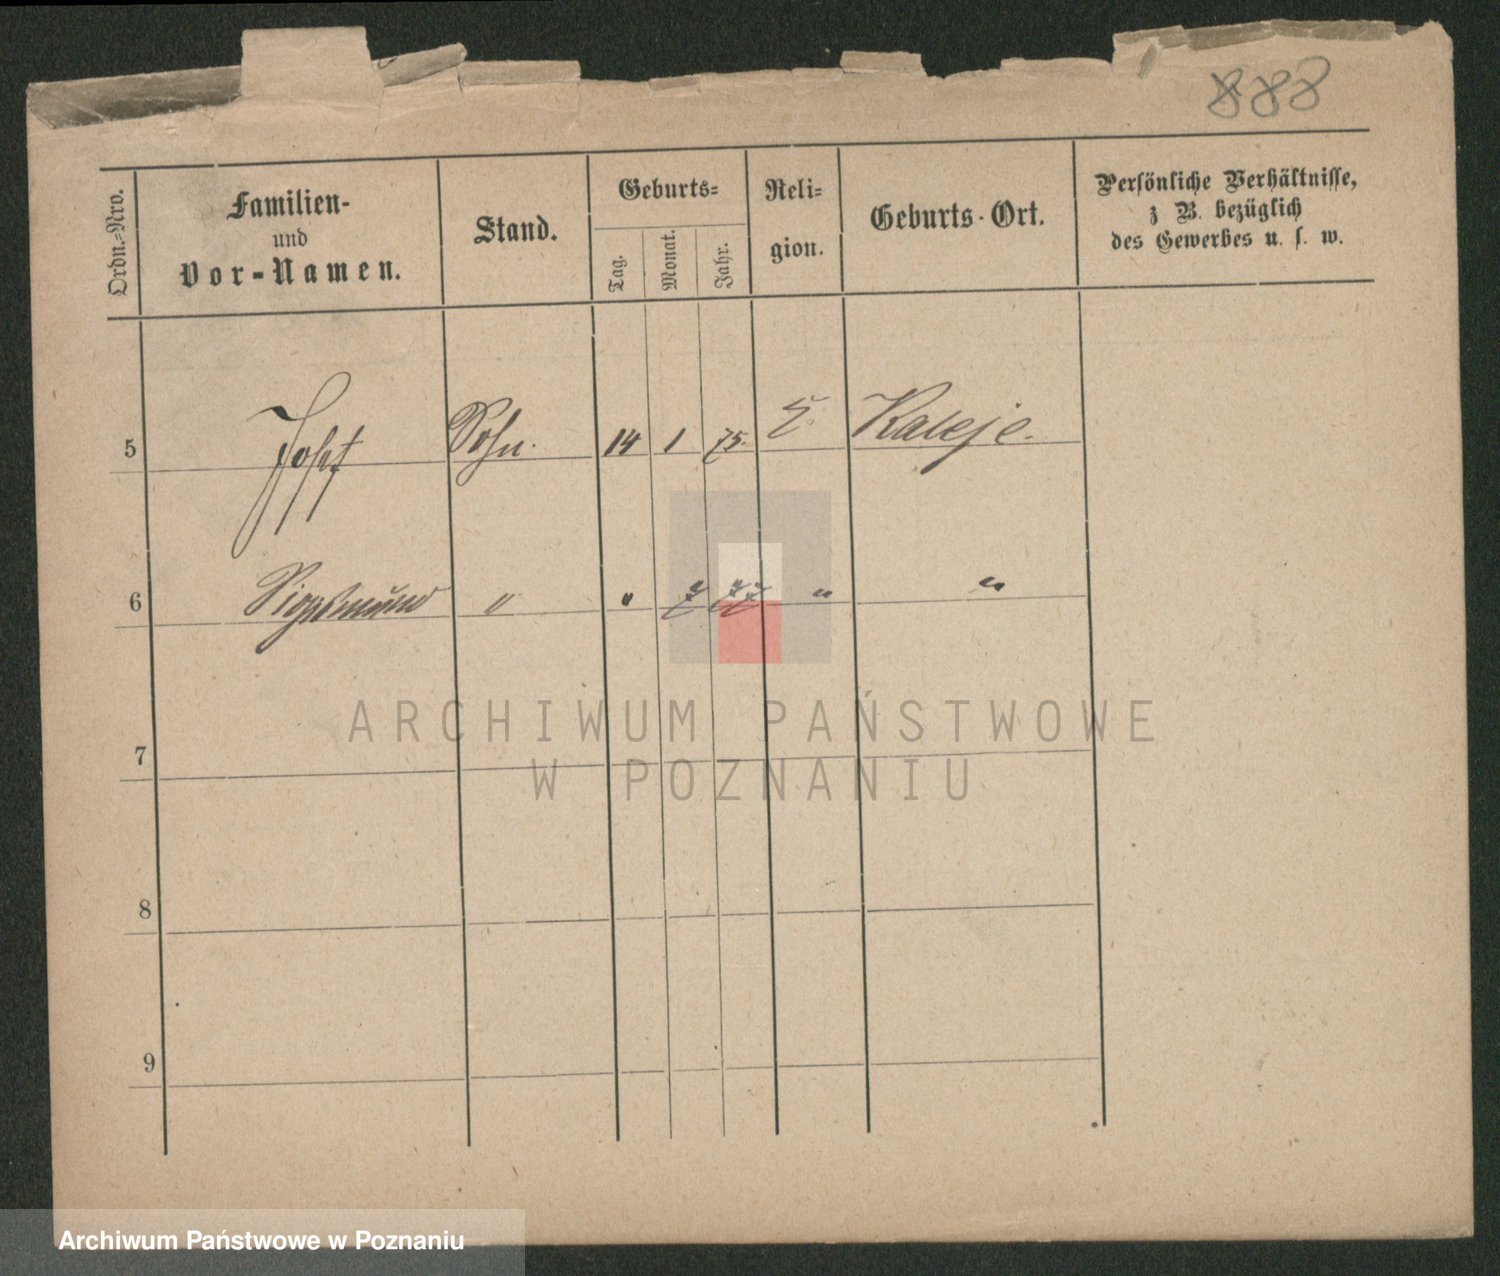 888
Ordn.-Nro.
Familien-
und
Vor-Namen.
Stand.
Geburts-
Tag.
Monat.
Jahr.
Reli-
gion.
Geburts-Ort.
Persönliche Verhältnisse,
z B. bezüglich
des Gewerbes u. s. w.
5 Josef Sohn. 14 1 75. Kaleje.
6 Sigismund " " 7 77 " "
7
8
9
ARCHIWUM PAŃSTWOWE
W POZNANIU
Archiwum Państwowe w Poznaniu